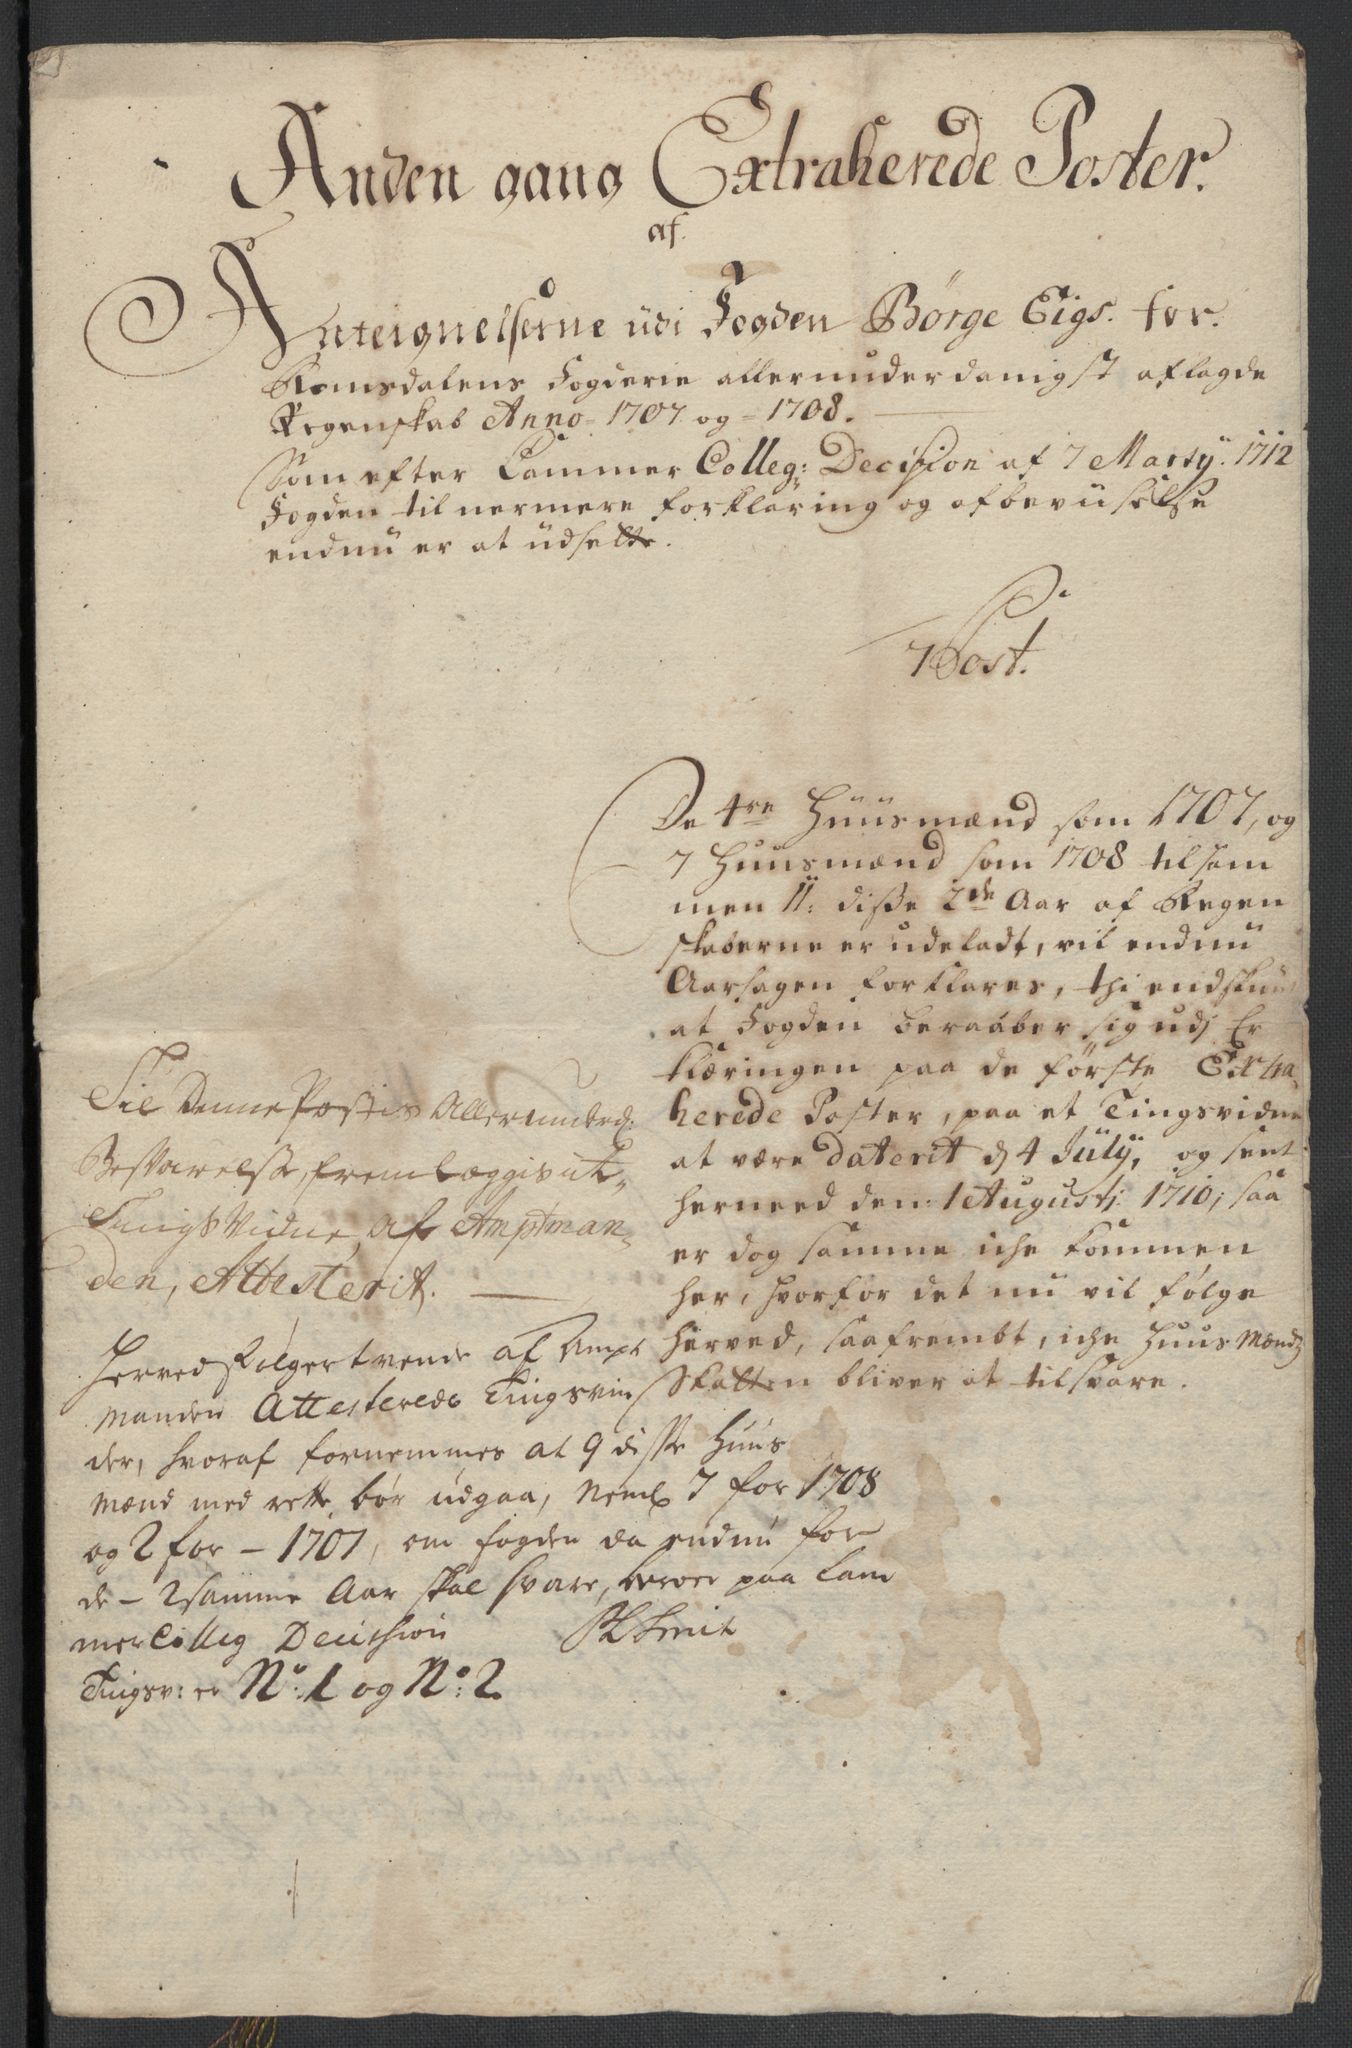 Anden gang Extraherede Poster.
af
Antegnelserne udi Fogden Børge Eigs. for.
Romsdalens Fogderie allerunderdanigst aflagde
Regenskab Anno 1707 og 1708.
Som efter Cammer Colleg: Decision af 7 Martÿ. 1712
Fogden til nermere forklaring og afbeviiselse
endnu er at udsette.
7 Post.
De 4re Huusmænd som 1707, og
7 Huusmænd som 1708 tilsam
men 11: disse 2de Aar af Regen
skaberne er udeladt, vil endnu
Aarsagen forklares, thi endskiøn
at Fogden beraaber sig udj Er
klæringen paa de første Extra-
herede Poster, paa et Tingsvidne
at være daterit d 4 Julÿ, og sent
herneed den 1 Augustj 1710, saa
er dog samme iche kommen
her, hvorfor det nu vil følge
herved, saafrembt, iche Huus Mændz
Skatten bliver at tilsvare.
Til Denne Postis Allerunded:
Besvarelse, fremlæggis it
Tings Vidne af Amptman-
den, Attesterit.
Herved følger tvende af Ampt
manden Attesterede Tingsvin
der, hvoraf fornemmes at 9 disse Huus
mænd med rette bør udgaa, Neml 7 for 1708
og 2 for - 1707, om fogden da endnu for
de - 2 samme Aar skal svare, beroer paa Cam
mer Colleg Decission
Smit
Tingsv: er No: 1 og No: 2.